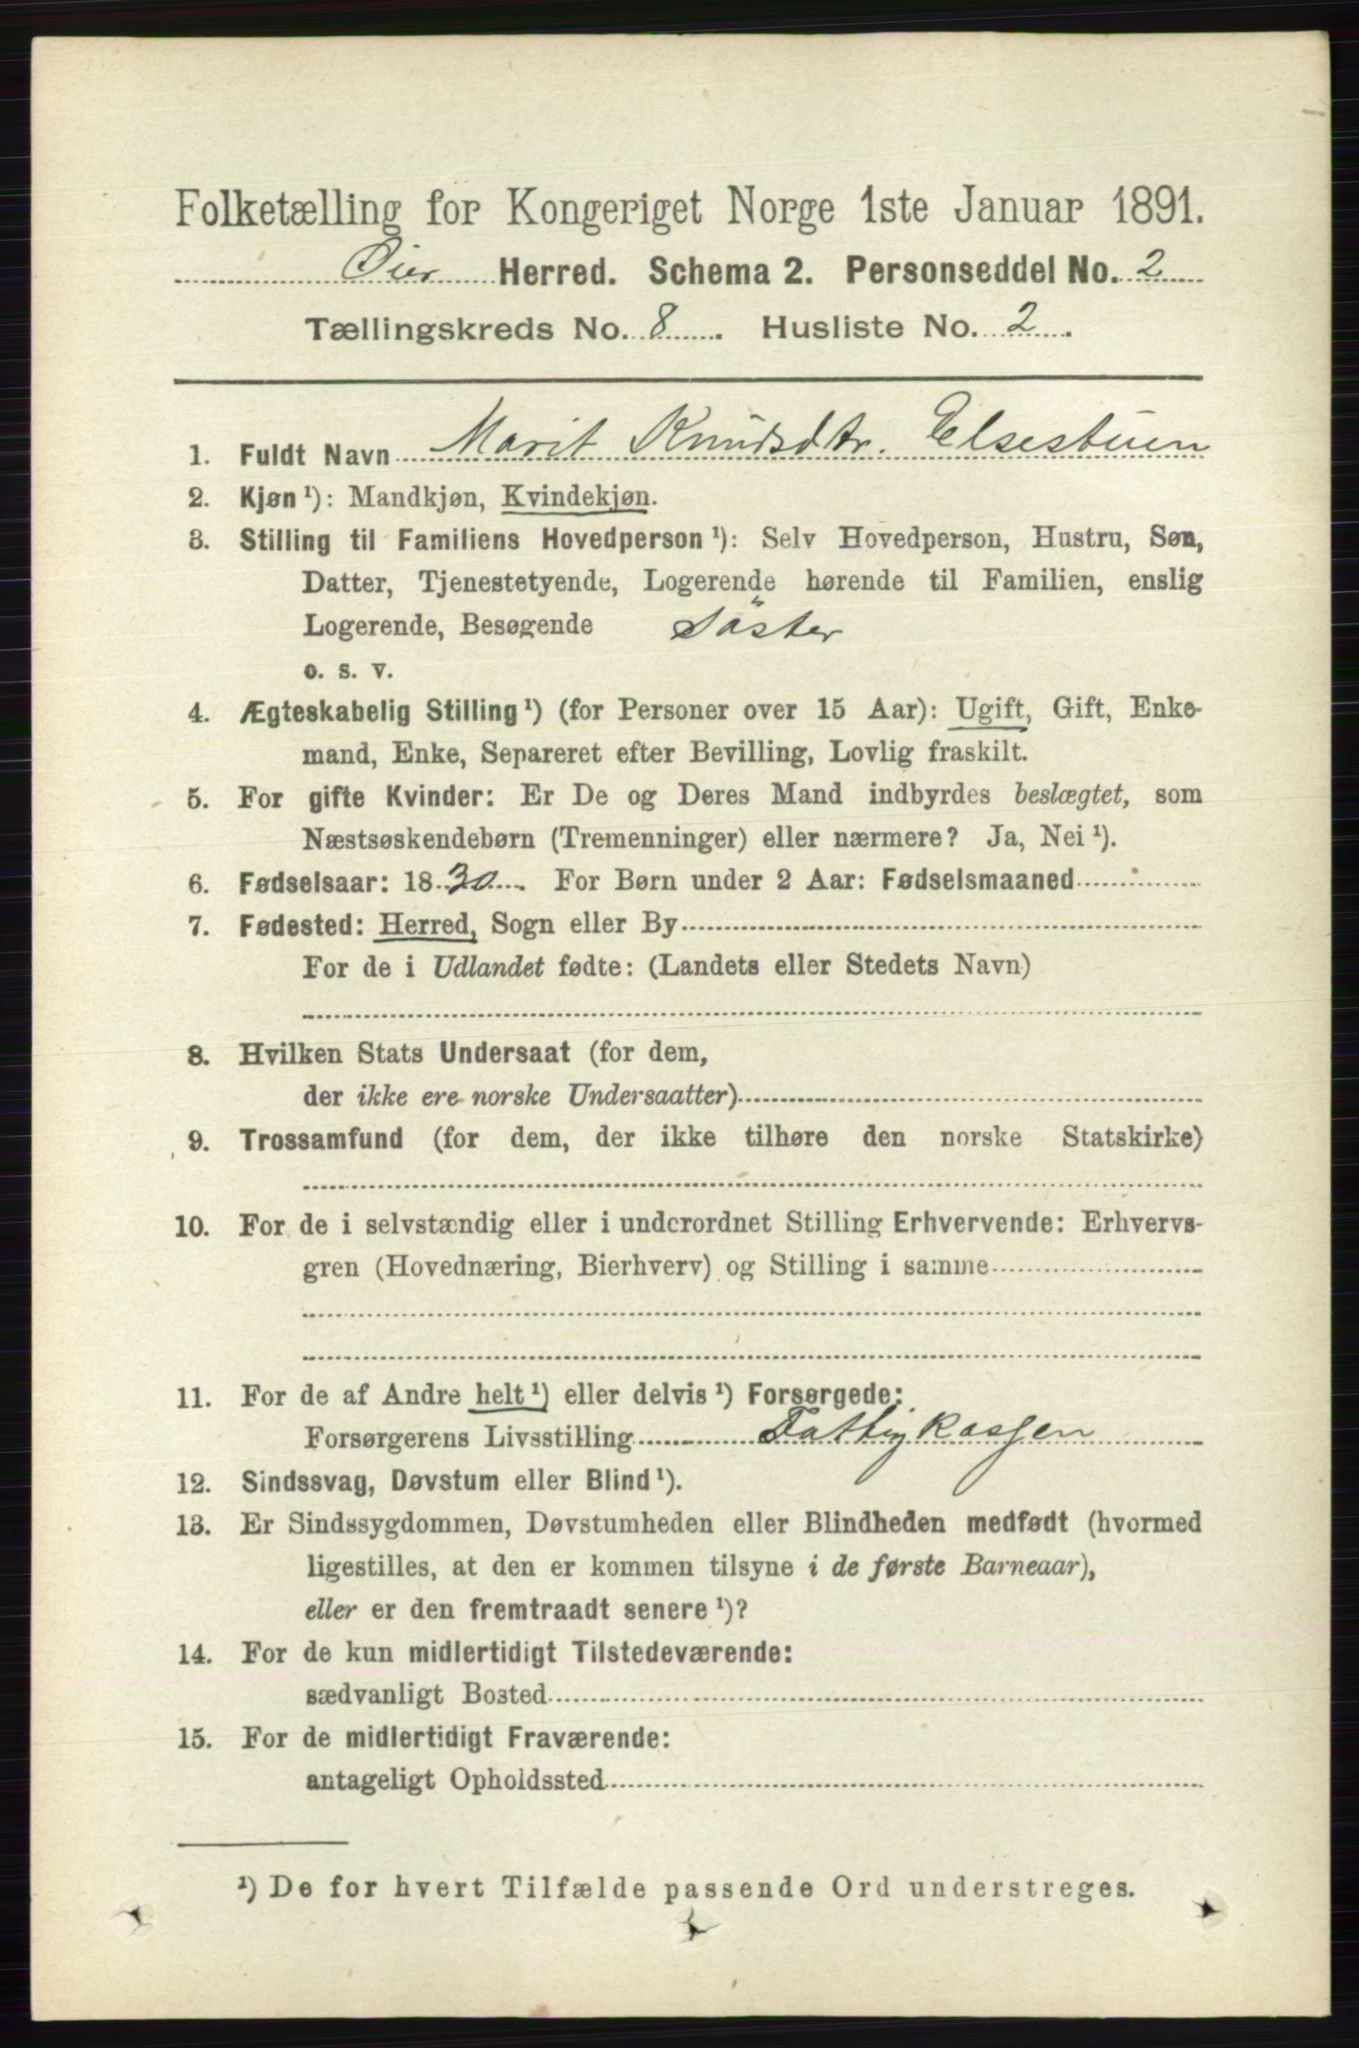 Folketælling for Kongeriget Norge 1ste Januar 1891.
Øier Herred. Schema 2. Personseddel No. 2
Tællingskreds No. 8. Husliste No. 2.
1. Fuldt Navn Marit Knudsdtr. Elsestuen
2. Kjøn ¹): Mandkjøn, Kvindekjøn.
3. Stilling til Familiens Hovedperson ¹): Selv Hovedperson, Hustru, Søn,
Datter, Tjenestetyende, Logerende hørende til Familien, enslig
Logerende, Besøgende Söster
o. s. v.
4. Ægteskabelig Stilling ¹) (for Personer over 15 Aar): Ugift, Gift, Enke-
mand, Enke, Separeret efter Bevilling, Lovlig fraskilt.
5. For gifte Kvinder: Er De og Deres Mand indbyrdes beslægtet, som
Næstsøskendebørn (Tremenninger) eller nærmere? Ja, Nei ¹).
6. Fødselsaar: 1830. For Børn under 2 Aar: Fødselsmaaned
7. Fødested: Herred, Sogn eller By
For de i Udlandet fødte: (Landets eller Stedets Navn)
8. Hvilken Stats Undersaat (for dem,
der ikke ere norske Undersaatter)
9. Trossamfund (for dem, der ikke tilhøre den norske Statskirke)
10. For de i selvstændig eller i underordnet Stilling Erhvervende: Erhvervs-
gren (Hovednæring, Bierhverv) og Stilling i samme
11. For de af Andre helt ¹) eller delvis ¹) Forsørgede:
Forsørgerens Livsstilling Fattigkassen
12. Sindssvag, Døvstum eller Blind ¹).
13. Er Sindssygdommen, Døvstumheden eller Blindheden medfødt (hvormed
ligestilles, at den er kommen tilsyne i de første Barneaar),
eller er den fremtraadt senere ¹)?
14. For de kun midlertidigt Tilstedeværende:
sædvanligt Bosted
15. For de midlertidigt Fraværende:
antageligt Opholdssted
¹) De for hvert Tilfælde passende Ord understreges.